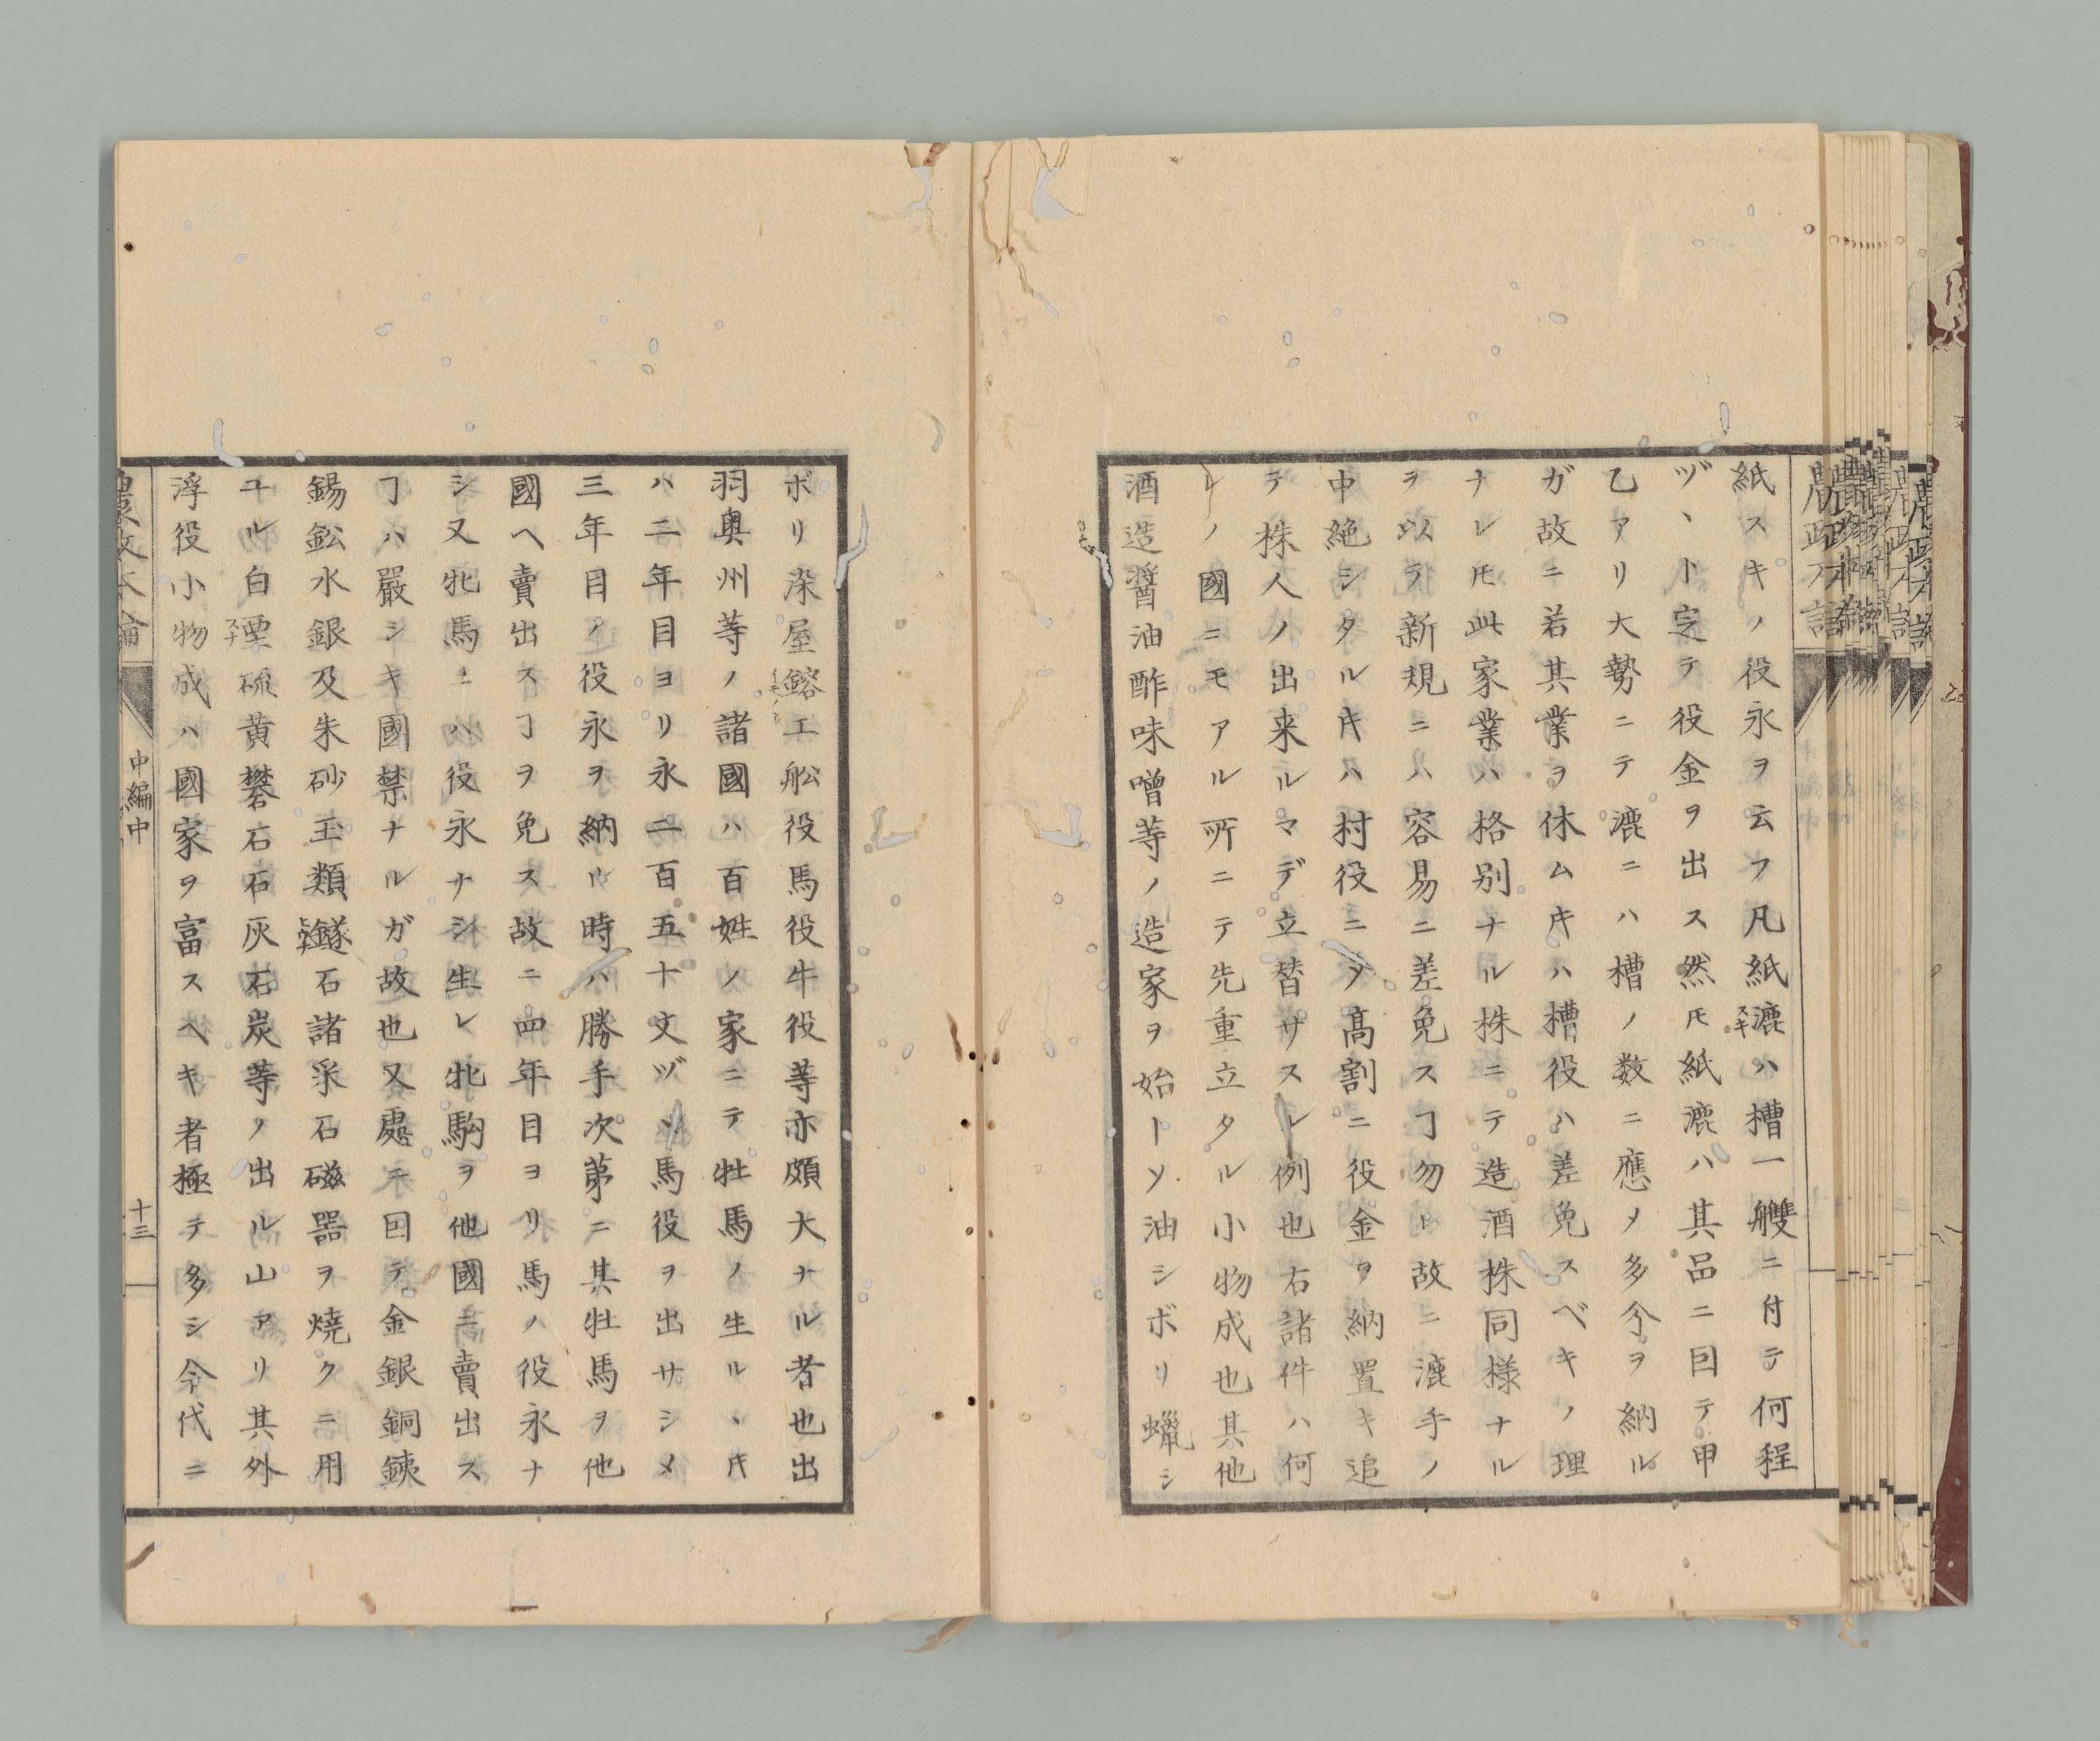 紙スキノ役永ヲ云フ凡紙漉ハ槽一艭ニ付テ何程
ヅヽト定テ役金ヲ出ス然ㇳモ紙漉ハ其品ニ因テ甲
乙アリ大勢ニテ漉ニハ槽ノ数ニ應メ多分ヲ納ル
ガ故ニ若其業ヲ休ム片ハ槽役ハ差免スベキノ理
ナレㇳモ此家業ハ格別ナル株ニテ造酒株同様ナル
ヲ以テ新規ニハ容易ニ差免スヿ勿レ故ニ漉手ノ
中絶シタル片ハ村役ニメ高割ニ役金ヲ納置キ追
テ株人ノ出来ルマデ立替サスル例也右諸件ハ何
レノ國ニモアル所ニテ先重立タル小物成也其他
酒造醤油酢味噌等ノ造家ヲ始トメ油シボリ蠟シ
ボリ染屋鎔工舩役馬役牛役等亦頗大ナル者也出
羽奥州等ノ諸國ハ百姓ノ家ニテ牡馬ノ生ルヽ片
ハ二年目ヨリ永二百五十文ヅヽ馬役ヲ出サシメ
三年目ノ役永ヲ納ル時ハ勝手次第ニ其牡馬ヲ他
國ヘ賣出スヿヲ免ス故ニ四年目ヨリ馬ノ役永ナ
シ又牝馬ニハ役永ナシ生レ牝駒ヲ他國ニ賣出ス
ヿハ嚴シキ國禁ナルガ故也又處ニ因テ金銀銅銕
錫鈆水銀及朱砂玉類鐩石諸釆石磁器ヲ燒クニ用
ユル白堊硫黄礬石石灰石炭等ノ出ル山アリ其外
浮役小物成ハ國家ヲ富スヘキ者極テ多シ今代ニ
農政本論
中編中
十三